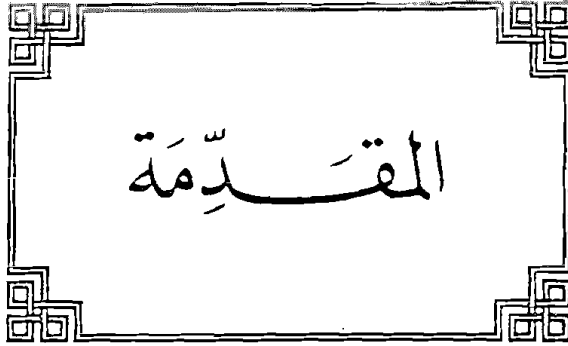 المقَدِّمَة